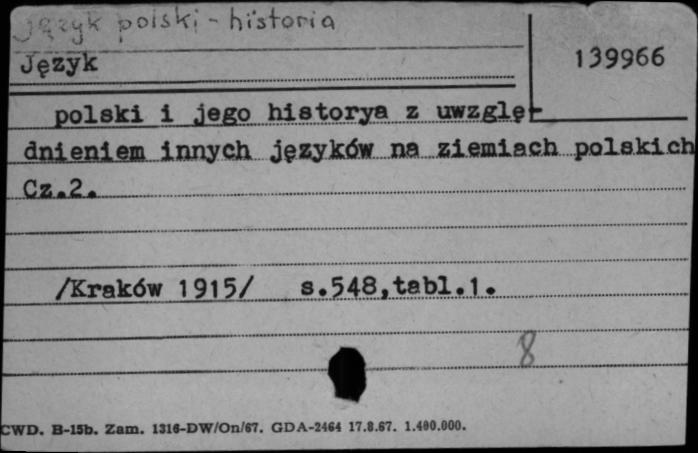 Język polski - historia
Język
139966
polski i jego historya z uwzglę-
dnieniem innych języków na ziemiach polskich
Cz.2.
/Kraków 1915/ s.548,tabl.1.
8
CWD. B-15b. Zam. 1316-DW/On/67. GDA-2464 17.8.67. 1.400.000.